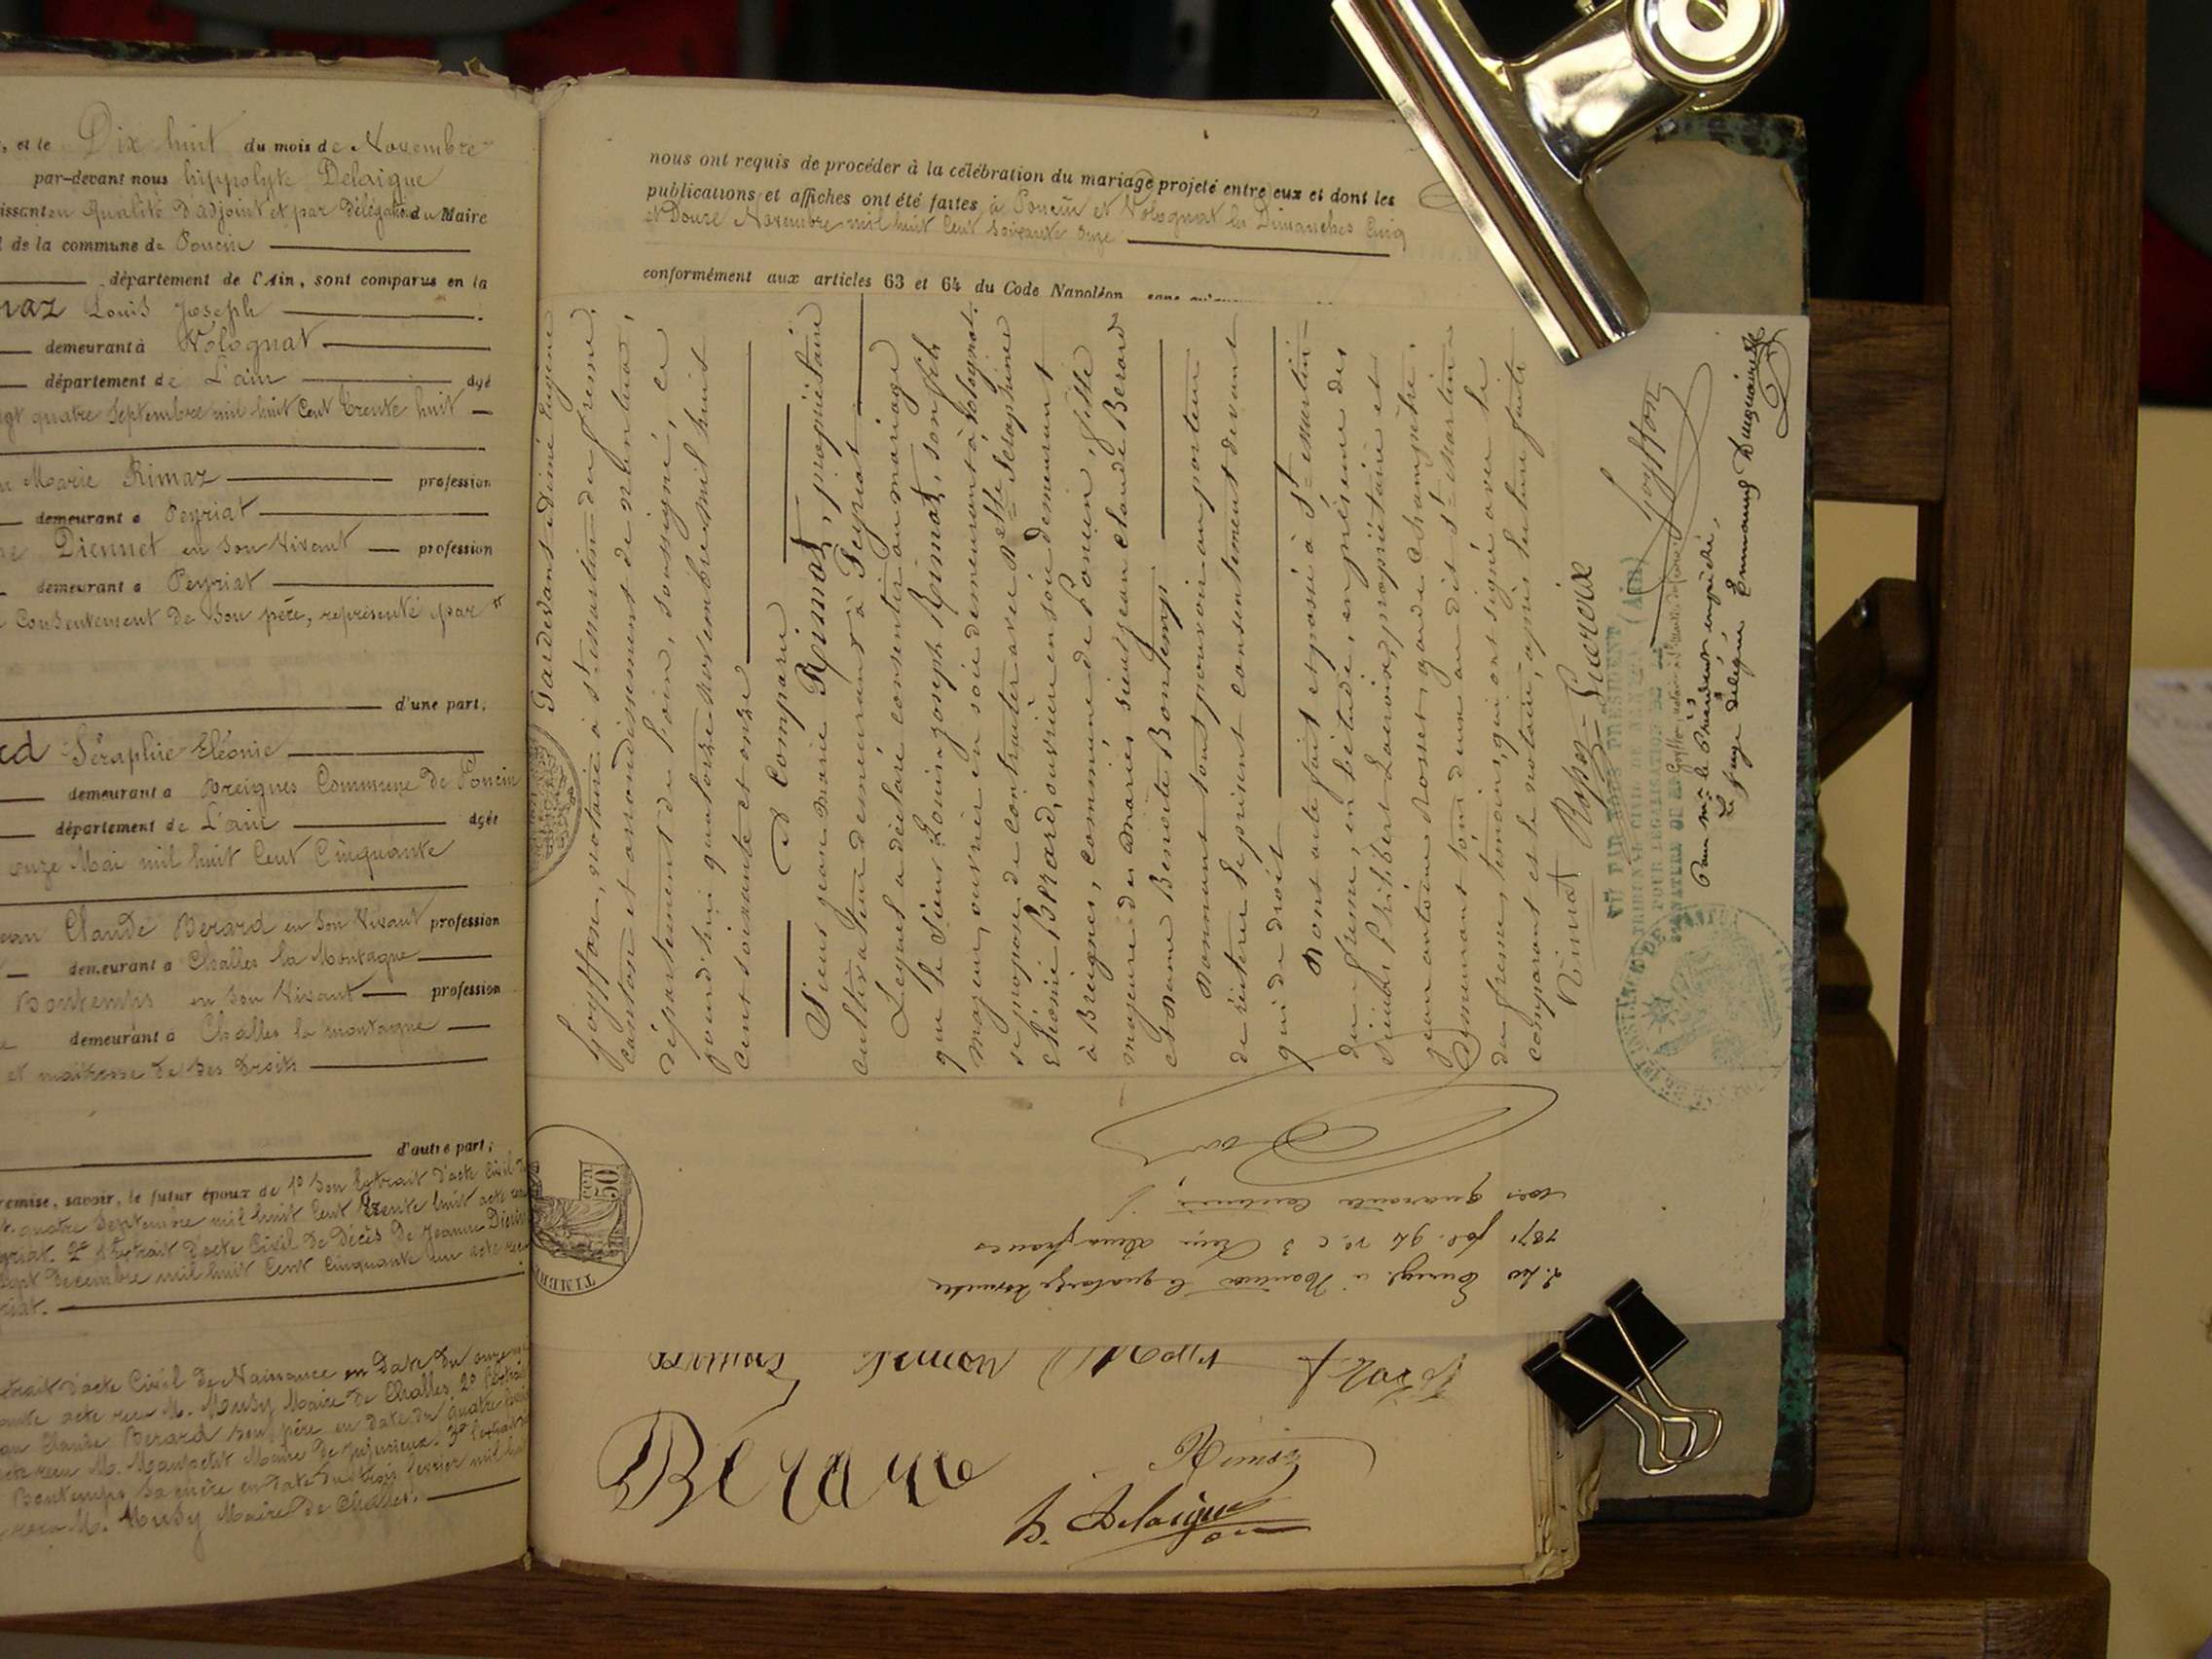 , et le Dix huit du mois de Novembre
par-devant nous hippolyte Delaigue
issant en qualité d'adjoint et par délégation du Maire
l de la commune de Poncin
département de l'Ain, sont comparus en la
naz Louis Joseph
demeurant à Volognat
département de L'ain âgé
ngt quatre Septembre mil huit Cent trente huit
Marie Rimaz profession
demeurant à Peyriat
Diennet en son Vivant profession
demeurant à Peyriat
Consentement de son père, représenté par
d'une part,
rd Séraphie Eléonie
demeurant à Breignes Commune de Poncin
département de L'ain âgée
onze Mai mil huit Cent Cinquante
ean Claude Berard en son Vivant profession
demeurant à Challes la Montagne
Bontemps en son Vivant profession
demeurant à Challes la montagne
et maîtresse de ses droits
d'autre part;
remise, savoir, le futur époux de 1º Son Extrait d'acte Civil
quatre Septembre mil huit Cent trente huit acte
yriat. 2º l'Extrait d'acte Civil de Décès de Jeanne
Sept Décembre mil huit Cent Cinquante un acte
riat.
trait d'acte Civil de Naissance en Date du onze
acte reçu M. Musy Maire de Challes. 2º
an Claude Berard son père en date du quatre
reçu M. Maire de Jujurieux. 3º
Bontemps sa mère en Date du trois février mil
M. Musy Maire de Challes.
nous ont requis de procéder à la célébration du mariage projeté entre eux et dont les
publications et affiches ont été faites à Poncin et Volognat les Dimanches Cinq
et Douze Novembre mil huit Cent Soixante onze
conformément aux articles 63 et 64 du Code Napoléon
Pardevant Edmé Eugène
Goyffon, notaire à St. Martin du fresne,
canton et arrondissement de Nantua,
département de l'ain, soussigné, ce
jourd'hui quatorze novembre mil huit
cent soixante et onze
A Comparu
Sieur jean marie Rimaz, propriétaire
cultivateur demeurant à Peyriat
Lequel a déclaré consentir au mariage
que le Sieur Louis joseph Rimaz, son fils
majeur, ouvrier en soie demeurant à Volognat,
se propose de contracter avec Delle Séraphine
Eléonie Bérard, ouvrière en soie demeurant
à Breignes, commune de Poncin, fille
majeure des mariés sieur jean claude Berard
et Dame Benoite Bontemps
Donnant tout pouvoir au porteur
de réitérer le présent consentement devant
qui de droit
Dont acte fait et passé à St. martin
du fresne, en l'étude, en présence des
Sieurs Philibert Lacroix, propriétaire et
jean antoine Rosset, garde champêtre
demeurant tous deux au dit St. martin
du fresne, témoins, qui ont signé avec le
comparant et le notaire, après lecture faite
Rimaz Lacroix Goyffon
VU PAR NOUS PRÉSIDENT
DU TRIBUNAL CIVIL DE NANTUA (Ain)
POUR LÉGALISATION DE LA
SIGNATURE DE Me Goyffon
Pour Mr. le Président empêché,
Le juge délégué
2.40 Enregé. à Nantua le quatorze novembre
1871 fol. 94 Vo. c 3 Reçu deux francs
quarante centimes
TIMBRE
50
Bérard
Rimaz
h. Delaigue